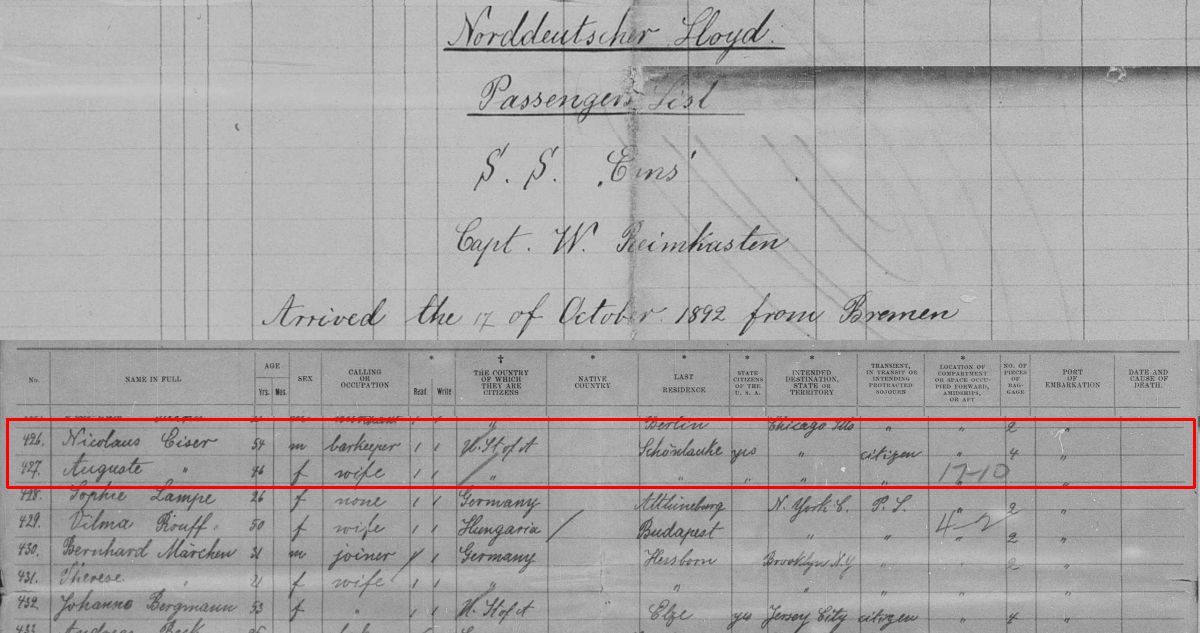 Norddeutscher Lloyd.
Passenger List
S. S. „Ems"
Capt. W. Reimkasten
Arrived the 17 of October 1892 from Bremen
No. NAME IN FULL AGE Yrs. Mos. SEX CALLING OR OCCUPATION * Read Write † THE COUNTRY OF WHICH THEY ARE CITIZENS * NATIVE COUNTRY * LAST RESIDENCE * STATE CITIZENS OF THE U. S. A. * INTENDED DESTINATION, STATE OR TERRITORY * TRANSIENT, IN TRANSIT OR INTENDING PROTRACTED SOJOURN * LOCATION OF COMPARTMENT OR SPACE OCCUPIED FORWARD, AMIDSHIPS, OR AFT NO. OF PIECES OF BAGGAGE PORT OF EMBARKATION DATE AND CAUSE OF DEATH.
m 1 1 " Berlin Chicago Ills " " 2 "
426. Nicolaus Eiser 54 m barkeeper 1 1 U. St of A Schönlauke yes " citizen " 4 "
427. Auguste " 46 f wife 1 1 " " " " " 17-10 "
428. Sophie Lampe 26 f none 1 1 Germany Altluneburg N. York C. P. S. " 2 "
429. Vilma Rouff 50 f wife 1 1 Hungaria / Budapest " " 4-2 2 "
430. Bernhard Märchen 31 m joiner 1 1 Germany Hersborn Brooklyn N.Y " " 2 "
431. Therese " 21 f wife 1 1 " " " " " "
432. Johanne Bergmann 53 f " 1 1 U. St of A Elze yes Jersey City citizen " 4 "
433. Andreas Beck